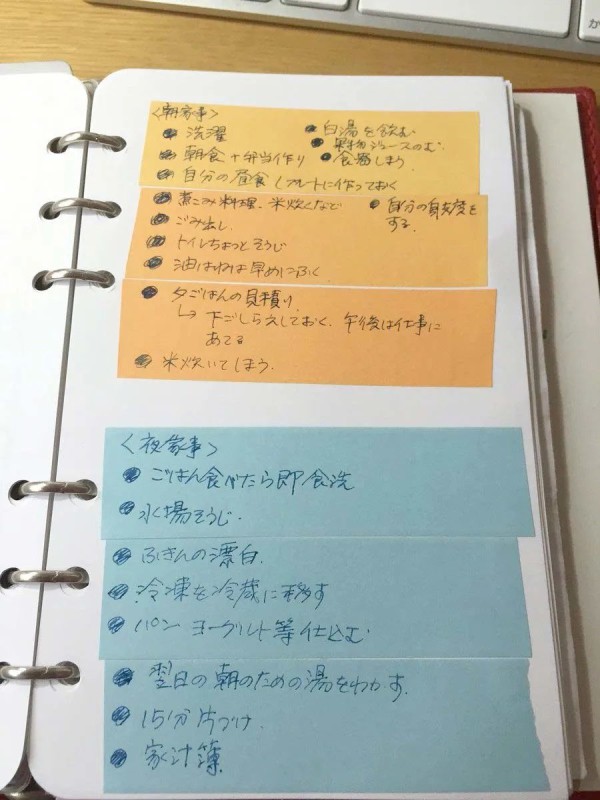 〈朝家事〉
● 洗濯
● 白湯を飲む
● 果物ジュースのむ
● 朝食+弁当作り
● 食器しまう
● 自分の昼食 プレートに作っておく
● 煮こみ料理、米炊くなど
● 自分の身支度を
する
● ごみ出し
● トイレちょっとそうじ
● 油はねは早めにふく
● 夕ごはんの見積り
↳ 下ごしらえしておく、午後は仕事に
あてる
● 米炊いてしまう.
〈夜家事〉
● ごはん食べたら即食洗
● 水場そうじ.
● ふきんの漂白.
● 冷凍を冷蔵に移す
● パン ヨーグルト等仕込む
● 翌日の朝のための湯をわかす.
● 15分片づけ.
● 家計簿
か